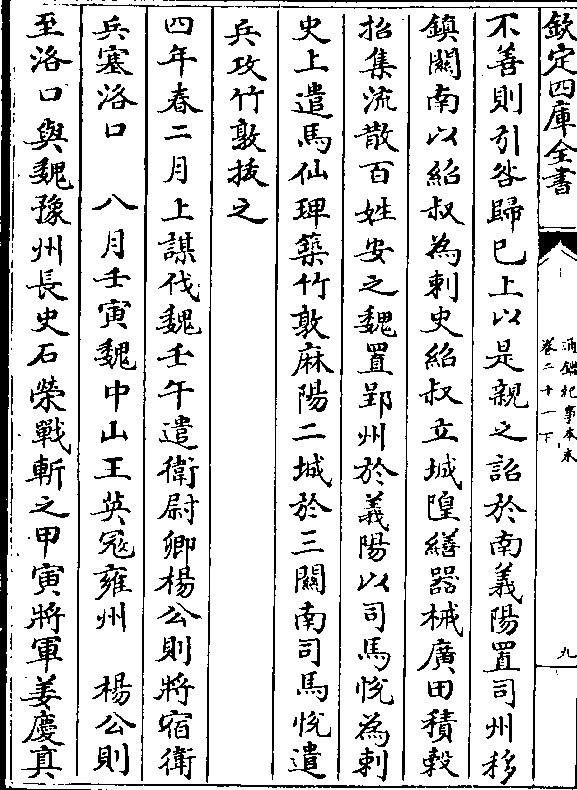 欽定四庫全書
通鑑紀事本末
卷二十一下
九
不善則引咎歸已上以是親之詔於南義陽置司州移
鎮關南以紹叔為刺史紹叔立城隍繕器械廣田積穀
招集流散百姓安之魏置郢州於義陽以司馬悅為刺
史上遣馬仙琕築竹敦麻陽二城於三關南司馬悅遣
兵攻竹敦拔之
四年春二月上謀伐魏壬午遣衛尉卿楊公則將宿衛
兵塞洛口　八月壬寅魏中山王英冦雍州　楊公則
至洛口與魏豫州長史石榮戰斬之甲寅將軍姜慶真